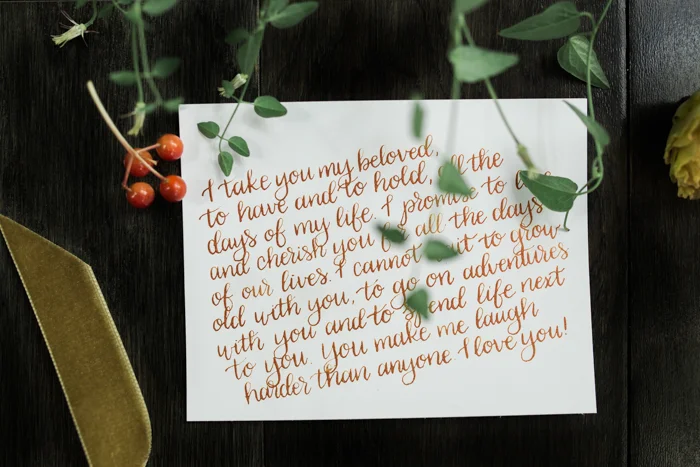 I take you my beloved,
to have and to hold, all the
days of my life. I promise to
and cherish you for all the days
of our lives. I cannot wait to grow
old with you, to go on adventures
with you and to spend life next
to you. You make me laugh
harder than anyone. I love you!